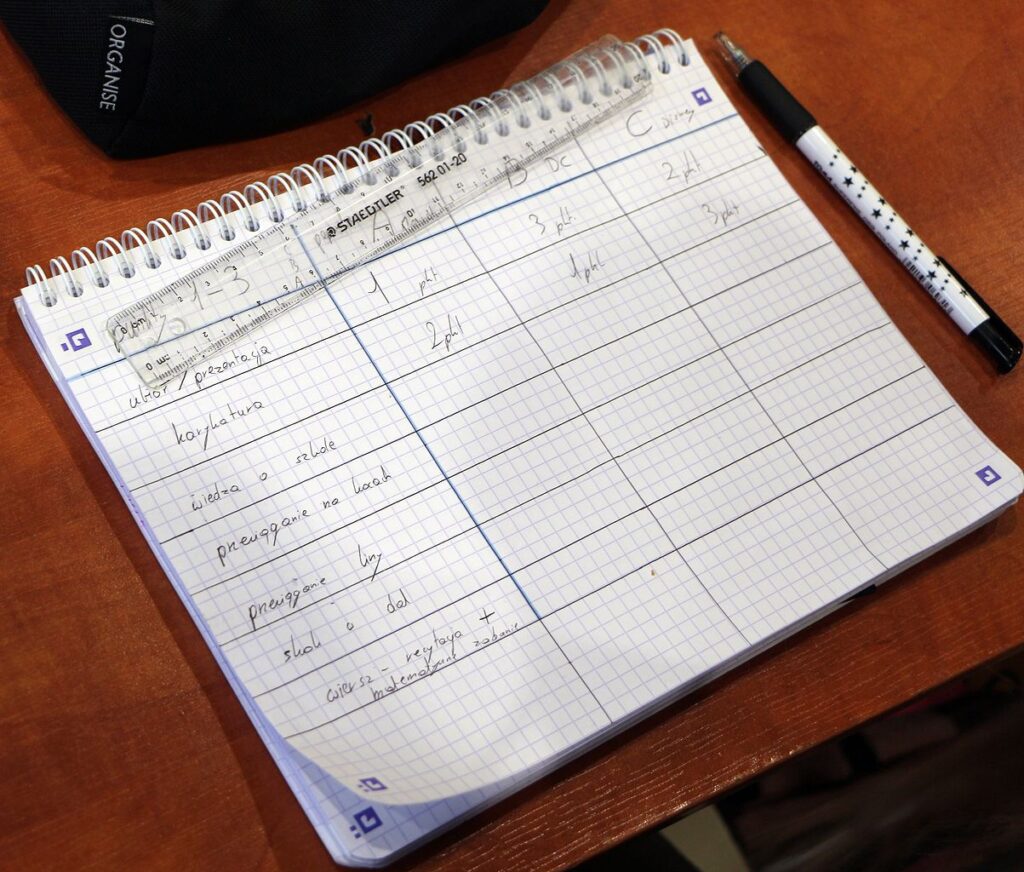 ORGANISE
STAEDTLER 562 01-20
1-3
B DC
C Disney
ubiór / prezentacja
1 pkt
3 pkt
2 pkt
karykatura
2 pkt
1 pkt
3 pkt
wiedza o szkole
przeciąganie na kocach
przeciąganie liny
skok w dal
wiersz - recytacja +
matematyczne zadanie